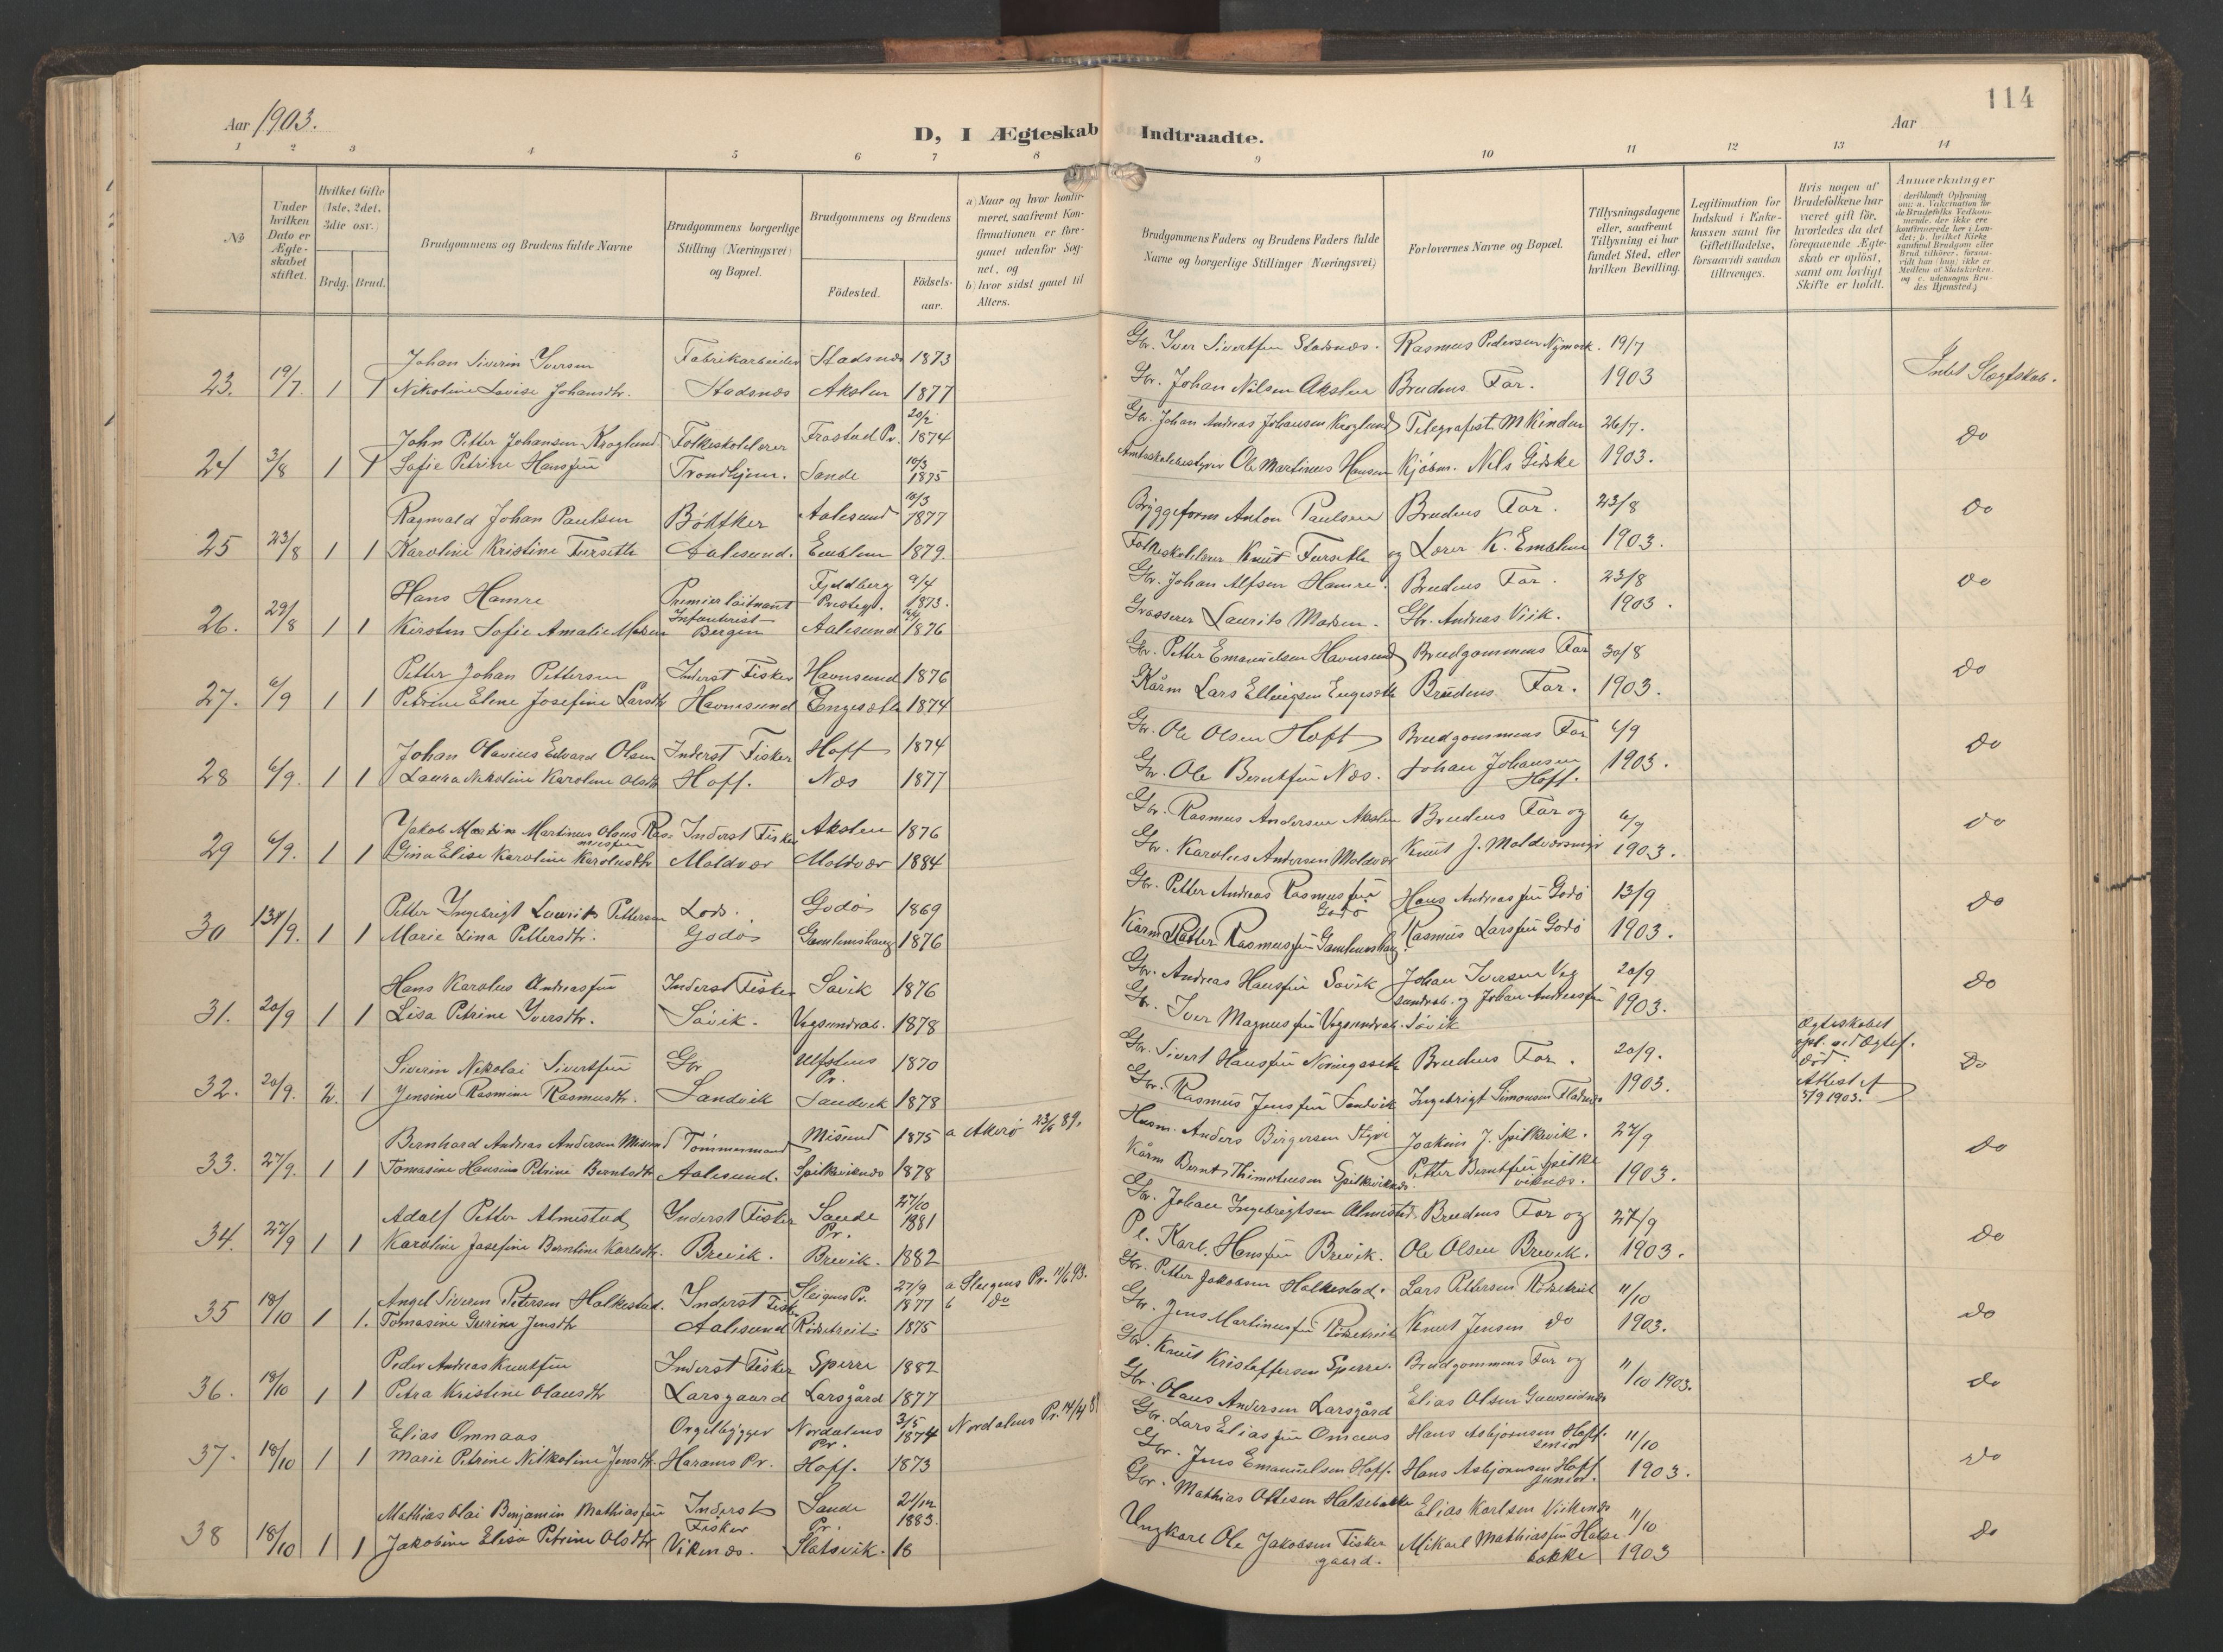 114
Aar 1903.
D, I Ægteskab Indtraadte.
Aar
1 2 3 4 5 6 7 8 9 10 11 12 13 14
No
Under hvilken Dato er Ægteskabet stiftet.
Hvilket Gifte (1ste, 2det, 3die osv.)
Brdg. Brud.
Brudgommens og Brudens fulde Navne
Brudgommens borgerlige Stilling (Næringsvei) og Bopæl.
Brudgommens og Brudens
Födested.
Födselsaar.
a) Naar og hvor konfirmeret, saafremt Konfirmationen er foregaaet udenfor Sognet, og
b) hvor sidst gaaet til Alters.
Brudgommens Faders og Brudens Faders fulde Navne og borgerlige Stillinger (Næringsvei)
Forlovernes Navne og Bopæl.
Tillysningsdagene eller, saafremt Tillysning ei har fundet Sted, efter hvilken Bevilling.
Legitimation for Indskud i Enkekassen samt for Giftetilladelse, forsaavidt saadan tiltrænges.
Hvis nogen af Brudefolkene har været gift för, hvorledes da det foregaaende Ægteskab er oplöst, samt om lovligt Skifte er holdt.
Anmærkninger
Johan Siverin Iversen Fabrikarbeider Stadsnæs 1873 Gbr. Iver Sivertsen Stadsnæs. Rasmus Pedersen Nymark. 19/7
23. 19/7. 1 1 Nikoline Lovise Johansdtr. Stadsnæs Akslen 1877 Gbr. Johan Nilsen Akslen Brudens Far. 1903 Intet Slægtskab.
John Petter Johansen Kroglund Folkeskolelærer Frostad Pr. 20/2 1874 Gbr. Johan Andreas Johansen Kroglund Telegrafist M Kinden 26/7.
24 3/8 1 1 Sofie Petrine Hansen Trondhjem. Sande 10/3 1875 Amtsskolebestyrer Ole Martinus Hansen Kjöbm. Nils Giske 1903. do
Ragnvald Johan Paulsen Bödtker Aalesund 10/3 1877 Bryggeform Anton Paulsen Brudens Far. 23/8
25 23/8 1 1 Karoline Kristine Furseth Aalesund. Emblem 1879. Folkeskolelærer Knut Furseth og Lærer K. Emblem 1903. do
Hans Hamre Premierlöitnant Fjeldberg Prestegj. 9/4 1873. Gbr. Johan Alfsen Hamre. Brudens Far. 23/8
26. 29/8 1 1 Kirsten Sofie Amalie Madsen Infanteriet Bergen Aalesund 1876 Grosserer Laurits Madsen. Gbr. Andreas Viik. 1903. do
Petter Johan Pettersen Inderst Fisker Havnsund 1876 Gbr. Petter Emanuelsen Havnsund Brudgommens Far 30/8
27. 6/9 1 1 Petrine Elene Josefine Larsdtr Havnsund Engesæth 1874 Kårm Lars Ellingsen Engesæth Brudens Far. 1903. do
Johan Olavius Edvard Olsen Inderst Fisker Hoff 1874 Gbr. Ole Olsen Hoff Brudgommens Far 6/9
28 6/9. 1 1 Laura Nikoline Karoline Olsdtr Hoff. Næs 1877 Gbr. Ole Berntsen Næs. Johan Johansen Hoff. 1903. do
Jakob Martin Martinus Olaus Rasmussen Inderst Fisker Akslen 1876 Gbr. Rasmus Andersen Akslen Brudens Far og 6/9
29 6/9. 1 1 Gina Elise Karoline Karolusdtr Moldvær Moldvær 1884 Gbr. Karolus Andersen Moldvær Knut J. Moldværsmyr 1903. do
Petter Ingebrigt Laurits Pettersen Lods. Godö 1869 Gbr. Petter Andreas Rasmussen Godö Hans Andreassen Godö 13/9
30 13/9. 1 1 Marie Lina Pettersdtr. Godö Gamlemshaug 1876 Kårm Petter Rasmussen Gamlemshaug. Rasmus Larsen Godö 1903. do
Hans Karolus Andreassen Inderst Fisker Søvik 1876 Gbr. Andreas Hansen Søvik Johan Iversen Veg 20/9
31. 20/9 1 1 Lisa Petrine Iversdtr. Søvik. Vegsundsæt. 1878 Gbr. Iver Magnussen Vegsundsæt. sundsæt. og Johan Andreassen Søvik 1903. do
Siverin Nikolai Sivertsen Gbr Ulfstens Pr. 1870 Gbr. Sivert Hansen Brudens Far. 20/9. Ægteskabet opl. ved Ægtef. död.
32. 20/9. 2. 1 Jensine Rasmine Rasmusdtr. Sandvik Sandvik 1878 Gbr. Rasmus Jenssen Sandvik Ingebrigt Simonsen Fladnæs 1903. Attest af 5/9 1903. do
Bernhard Andreas Andersen Misund Tömmermand Misund 1875 a Akerö 23/6 89. Husm. Anders Birgersen Joakim J. Spilkevik. 27/9
33. 27/9. 1 1 Tomasine Hansine Petrine Berntsdtr Aalesund. Spilkeviknæs 1878 Kårm Bernt Thimoteusen Spilkeviknæs. Petter Berntsen Spilkeviknæs. 1903. do
Adolf Petter Almestad Inderst Fisker Sande Pr. 27/10 1881 Gbr. Johan Ingebrigtsen Almestad Brudens Far og 27/9
34. 27/9 1 1 Karoline Josefine Berntine Karlsdtr. Brevik. Brevik. 1882 Pl. Karl Hansen Brevik. Ole Olsen Brevik. 1903. do
Angel Siveren Petersen Halkestad. Inderst Fisker Steigens Pr. 27/9 1877 a Steigens Pr. 11/6 93. b do Gbr. Petter Jakobsen Halkestad. Lars Pettersen Rödsetreit 11/10
35 18/10 1 1. Tomasine Gurine Jensdtr Aalesund Rödsetreit 1875 Gbr. Jens Martinussen Rödsetreit Knut Jensen do 1903. do
Peder Andreas Knutsen Inderst Fisker Sperre 1882 Gbr. Knut Kristoffersen Sperre. Brudgommens Far og 11/10 1903.
36. 18/10 1 1 Petra Kristine Olausdtr Larsgaard Larsgård 1877 Gbr. Olaus Andersen Larsgård Elias Olsen Gaaseidnæs do
Elias Omnaas Orgelbygger Nordalens Pr. 3/5 1874 Nordalens Pr. 14/4 8 Gbr. Lars Eliassen Omnaas Hans Asbjörnsen Hoff. senior 11/10
37. 18/10 1 1 Marie Petrine Nikoline Jensdtr. Harams Pr. Hoff. 1873 Gbr. Jens Emanuelsen Hoff. Hans Asbjörnsen Hoff junior. 1903. do
Mathias Olai Benjamin Mathiassen Inderst Fisker Sande Pr. 21/12 1883. Gbr. Mathias Ottesen Halsebakke Elias Karlsen Viknæs 11/10
38 18/10 1 1 Jakobine Elisa Petrine Olsdtr Viknæs. Slatsvik. 18 Ungkarl Ole Jakobsen Fiskergaard. Mikael Mathiassen Halsebakke 1903 do